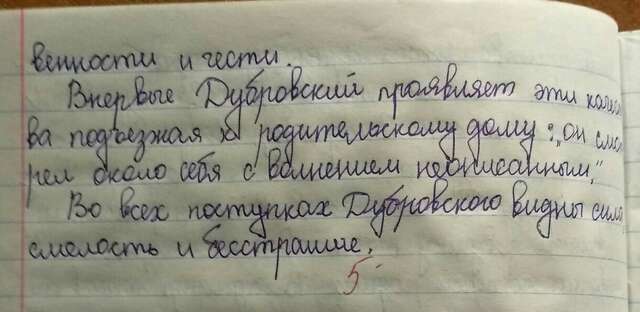 венности и чести.
Впервые Дубровский проявляет эти качест
ва подъезжая к родительскому дому: „он смот
рел около себя с волнением неописанным."
Во всех поступках Дубровского видны сила,
смелость и бесстрашие.
5-